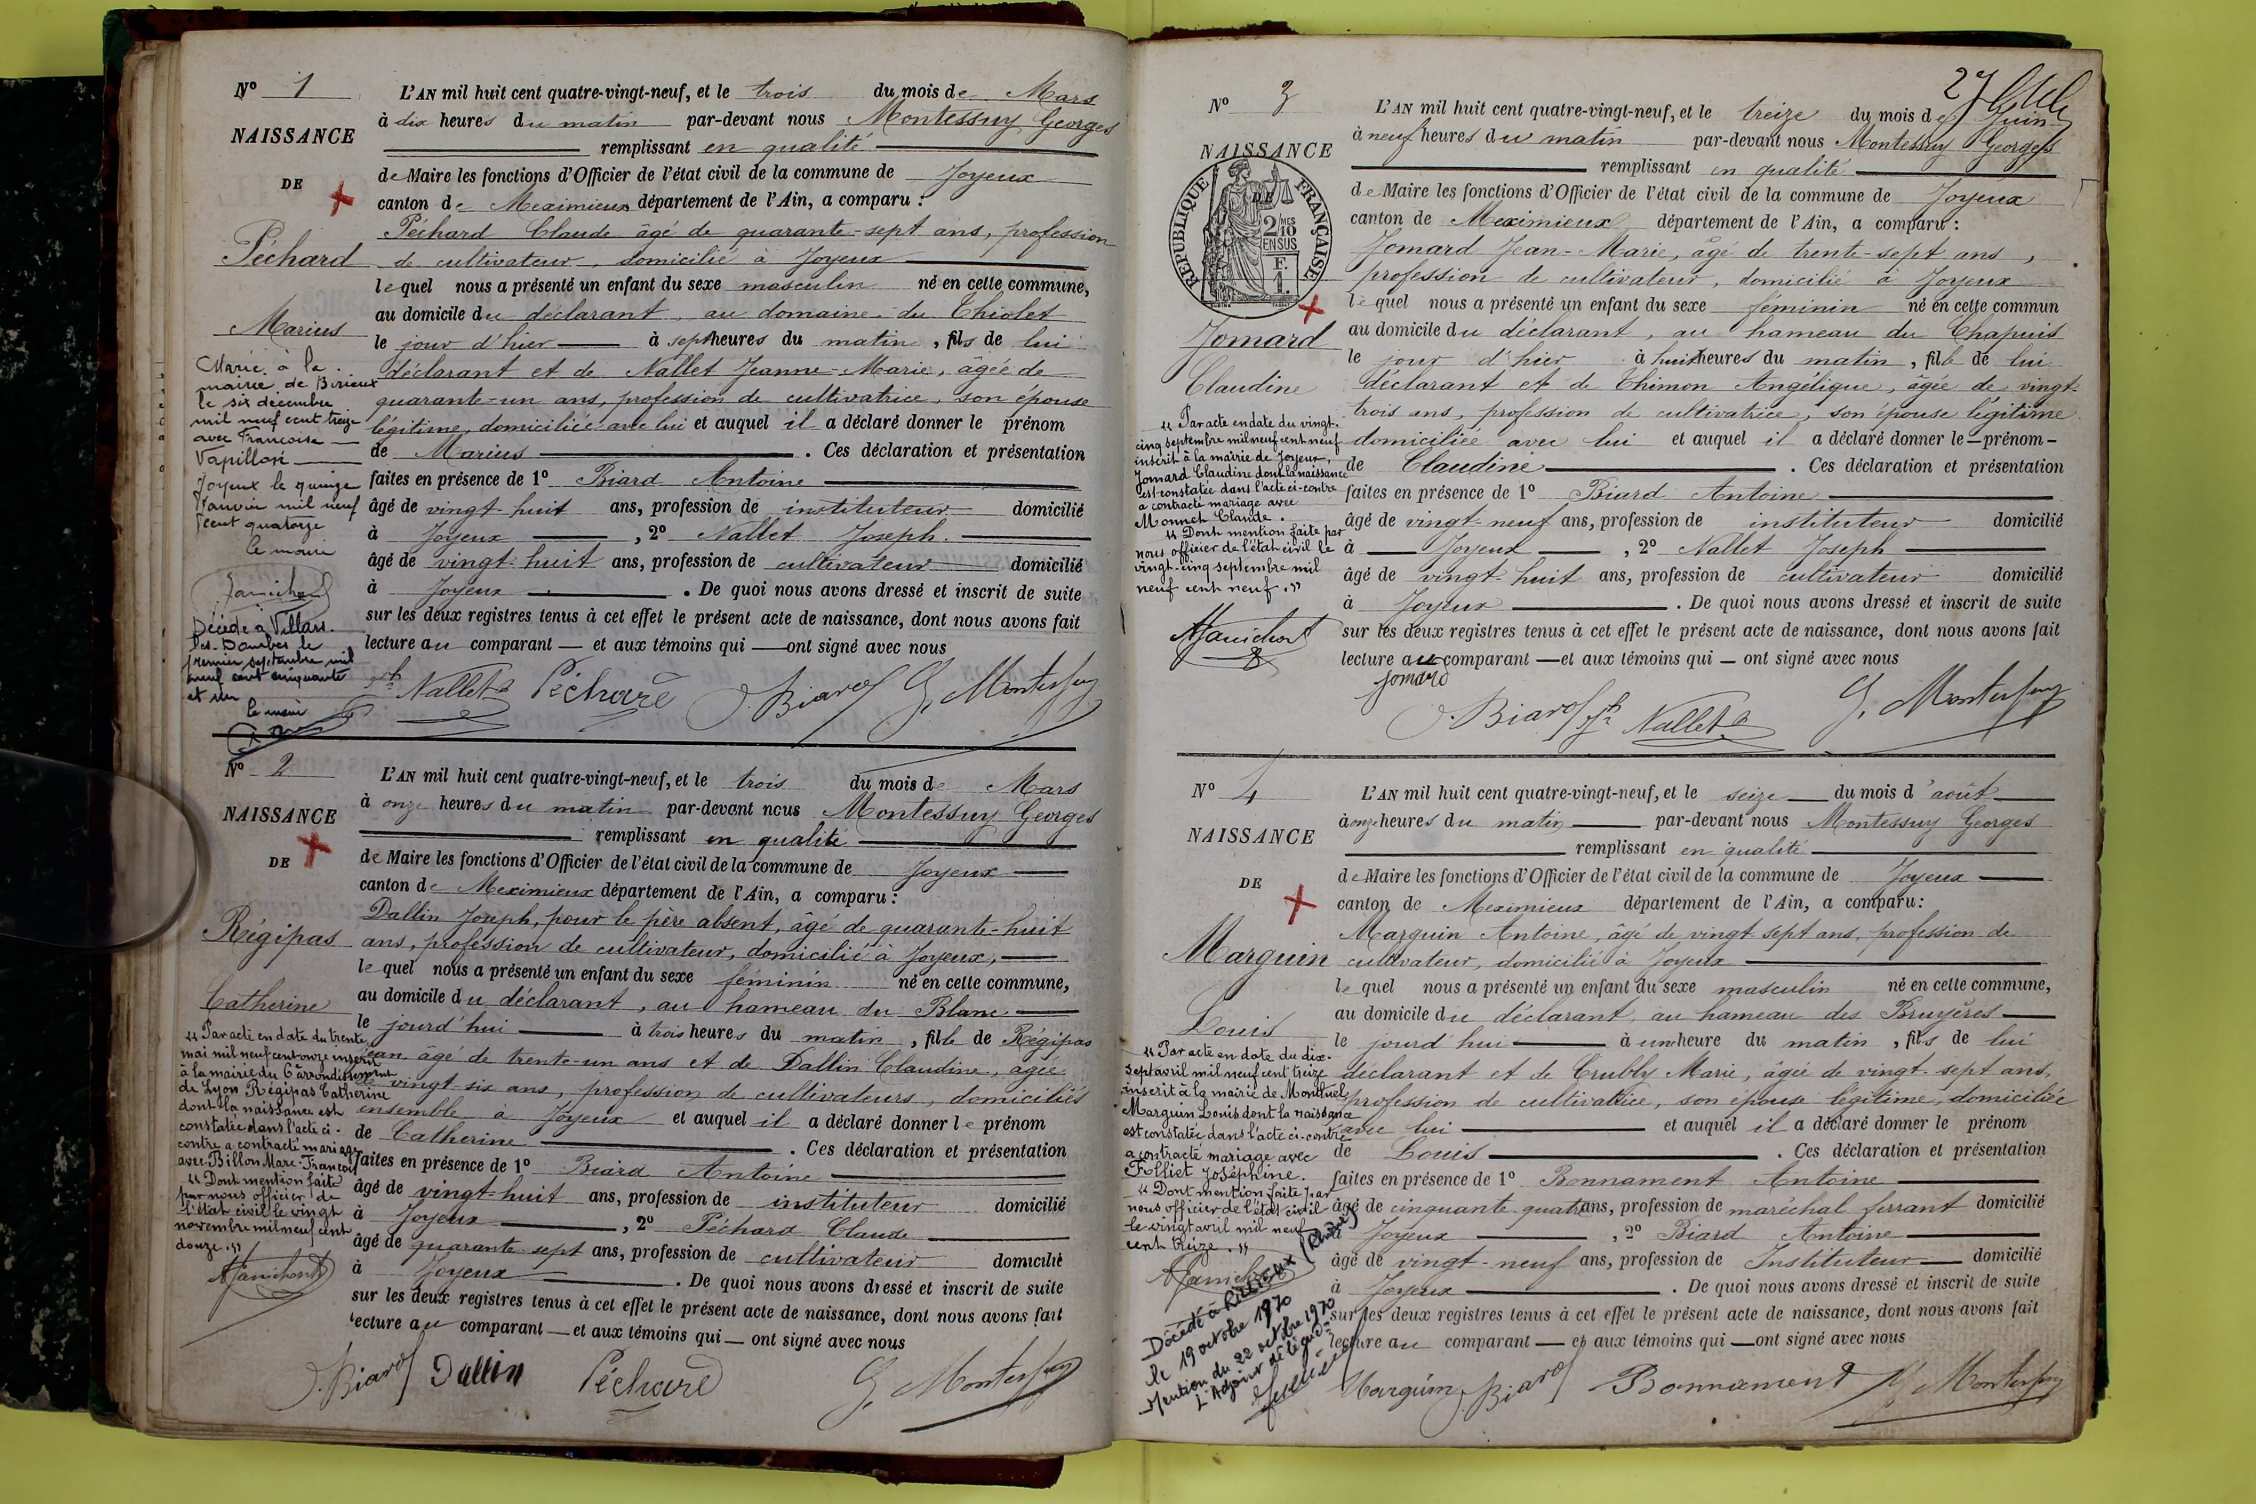 Nº 1
NAISSANCE
DE
Péchard
Marius
Marié à la
mairie de Birieux
le six décembre
mil neuf cent treize
avec Françoise
Vapillon
Joyeux le quinze
Janvier mil neuf
cent quatorze
le maire
Janichon
Décédé à Villars
les-Dombes le
premier septembre mil
neuf cent cinquante
et un
le maire
L'AN mil huit cent quatre-vingt-neuf, et le trois du mois de Mars
à dix heures du matin par-devant nous Montessuy Georges
remplissant en qualité
de Maire les fonctions d'Officier de l'état civil de la commune de Joyeux
canton de Meximieux département de l'Ain, a comparu :
Péchard Claude âgé de quarante-sept ans, profession
de cultivateur, domicilié à Joyeux
lequel nous a présenté un enfant du sexe masculin né en cette commune,
au domicile du déclarant, au domaine du Chiolet
le jour d'hier à sept heures du matin, fils de lui
déclarant et de Nallet Jeanne-Marie, âgée de
quarante-un ans, profession de cultivatrice, son épouse
légitime, domiciliée avec lui et auquel il a déclaré donner le prénom
de Marius. Ces déclaration et présentation
faites en présence de 1º Biard Antoine
âgé de vingt-huit ans, profession de instituteur domicilié
à Joyeux, 2º Nallet Joseph
âgé de vingt-huit ans, profession de cultivateur domicilié
à Joyeux. De quoi nous avons dressé et inscrit de suite
sur les deux registres tenus à cet effet le présent acte de naissance, dont nous avons fait
lecture au comparant — et aux témoins qui — ont signé avec nous
Jh Nallet Péchard J. Biard G. Montessuy
Nº 2
NAISSANCE
DE
Régipas
Catherine
"Par acte en date du trente
mai mil neuf cent onze inscrit
à la mairie du 6e arrondissement
de Lyon Régipas Catherine
dont la naissance est
constatée dans l'acte ci-
contre a contracté mariage
avec Billon Marc-François
"Dont mention faite
par nous officier de
l'état civil le vingt
novembre mil neuf cent
douze."
AJanichon
L'AN mil huit cent quatre-vingt-neuf, et le trois du mois de Mars
à onze heures du matin par-devant nous Montessuy Georges
remplissant en qualité
de Maire les fonctions d'Officier de l'état civil de la commune de Joyeux
canton de Meximieux département de l'Ain, a comparu :
Dallin Joseph, pour le père absent, âgé de quarante-huit
ans, profession de cultivateur, domicilié à Joyeux,
lequel nous a présenté un enfant du sexe féminin né en cette commune,
au domicile du déclarant, au hameau du Blanc
le jourd'hui à trois heures du matin, fille de Régipas
Jean âgé de trente-un ans et de Dallin Claudine, âgée
de vingt-six ans, profession de cultivateurs, domiciliés
ensemble à Joyeux et auquel il a déclaré donner le prénom
de Catherine. Ces déclaration et présentation
faites en présence de 1º Biard Antoine
âgé de vingt-huit ans, profession de instituteur domicilié
à Joyeux, 2º Péchard Claude
âgé de quarante-sept ans, profession de cultivateur domicilié
à Joyeux. De quoi nous avons dressé et inscrit de suite
sur les deux registres tenus à cet effet le présent acte de naissance, dont nous avons fait
lecture au comparant — et aux témoins qui — ont signé avec nous
J. Biard Dallin Péchard G. Montessuy
27
Nº 3
NAISSANCE
DE
RÉPUBLIQUE FRANÇAISE
2/10 MES
EN SUS
F.
1.
Jomard
Claudine
"Par acte en date du vingt-
cinq septembre mil neuf cent neuf
inscrit à la mairie de Joyeux,
Jomard Claudine dont la naissance
est constatée dans l'acte ci-contre
a contracté mariage avec
Monnet Claude.
"Dont mention faite par
nous officier de l'état civil le
vingt-cinq septembre mil
neuf cent neuf."
AJanichon
L'AN mil huit cent quatre-vingt-neuf, et le treize du mois de Juin
à neuf heures du matin par-devant nous Montessuy Georges
remplissant en qualité
de Maire les fonctions d'Officier de l'état civil de la commune de Joyeux
canton de Meximieux département de l'Ain, a comparu :
Jomard Jean-Marie, âgé de trente-sept ans,
profession de cultivateur, domicilié à Joyeux
lequel nous a présenté un enfant du sexe féminin né en cette commun
au domicile du déclarant, au hameau du Chapuis
le jour d'hier à huit heures du matin, fille de lui
déclarant et de Thimon Angélique, âgée de vingt-
trois ans, profession de cultivatrice, son épouse légitime
domiciliée avec lui et auquel il a déclaré donner le — prénom —
de Claudine. Ces déclaration et présentation
faites en présence de 1º Biard Antoine
âgé de vingt-neuf ans, profession de instituteur domicilié
à Joyeux, 2º Nallet Joseph
âgé de vingt-huit ans, profession de cultivateur domicilié
à Joyeux. De quoi nous avons dressé et inscrit de suite
sur les deux registres tenus à cet effet le présent acte de naissance, dont nous avons fait
lecture au comparant — et aux témoins qui — ont signé avec nous
Jomard
J. Biard Jh Nallet G. Montessuy
Nº 4
NAISSANCE
DE
Marguin
Louis
"Par acte en date du dix-
sept avril mil neuf cent treize
inscrit à la mairie de Montluel
Marguin Louis dont la naissance
est constatée dans l'acte ci-contre
a contracté mariage avec
Folliet Joséphine.
"Dont mention faite par
nous officier de l'état civil
le vingt avril mil neuf
cent treize."
AJanichon
Décédé à RILLIEUX (Rhône)
le 19 octobre 1970
Mention du 22 octobre 1970
L'Adjoint délégué
L'AN mil huit cent quatre-vingt-neuf, et le seize du mois d'août
à onze heures du matin par-devant nous Montessuy Georges
remplissant en qualité
de Maire les fonctions d'Officier de l'état civil de la commune de Joyeux
canton de Meximieux département de l'Ain, a comparu:
Marguin Antoine, âgé de vingt-sept ans, profession de
cultivateur, domicilié à Joyeux
lequel nous a présenté un enfant du sexe masculin né en cette commune,
au domicile du déclarant, au hameau des Bruyères
le jourd'hui à une heure du matin, fils de lui
déclarant et de Crubly Marie, âgée de vingt-sept ans,
profession de cultivatrice, son épouse légitime, domiciliée
avec lui et auquel il a déclaré donner le prénom
de Louis. Ces déclaration et présentation
faites en présence de 1º Bonnament Antoine
âgé de cinquante-quatre ans, profession de maréchal ferrant domicilié
à Joyeux, 2º Biard Antoine
âgé de vingt-neuf ans, profession de Instituteur domicilié
à Joyeux. De quoi nous avons dressé et inscrit de suite
sur les deux registres tenus à cet effet le présent acte de naissance, dont nous avons fait
lecture au comparant — et aux témoins qui — ont signé avec nous
Marguin J. Biard Bonnament G. Montessuy